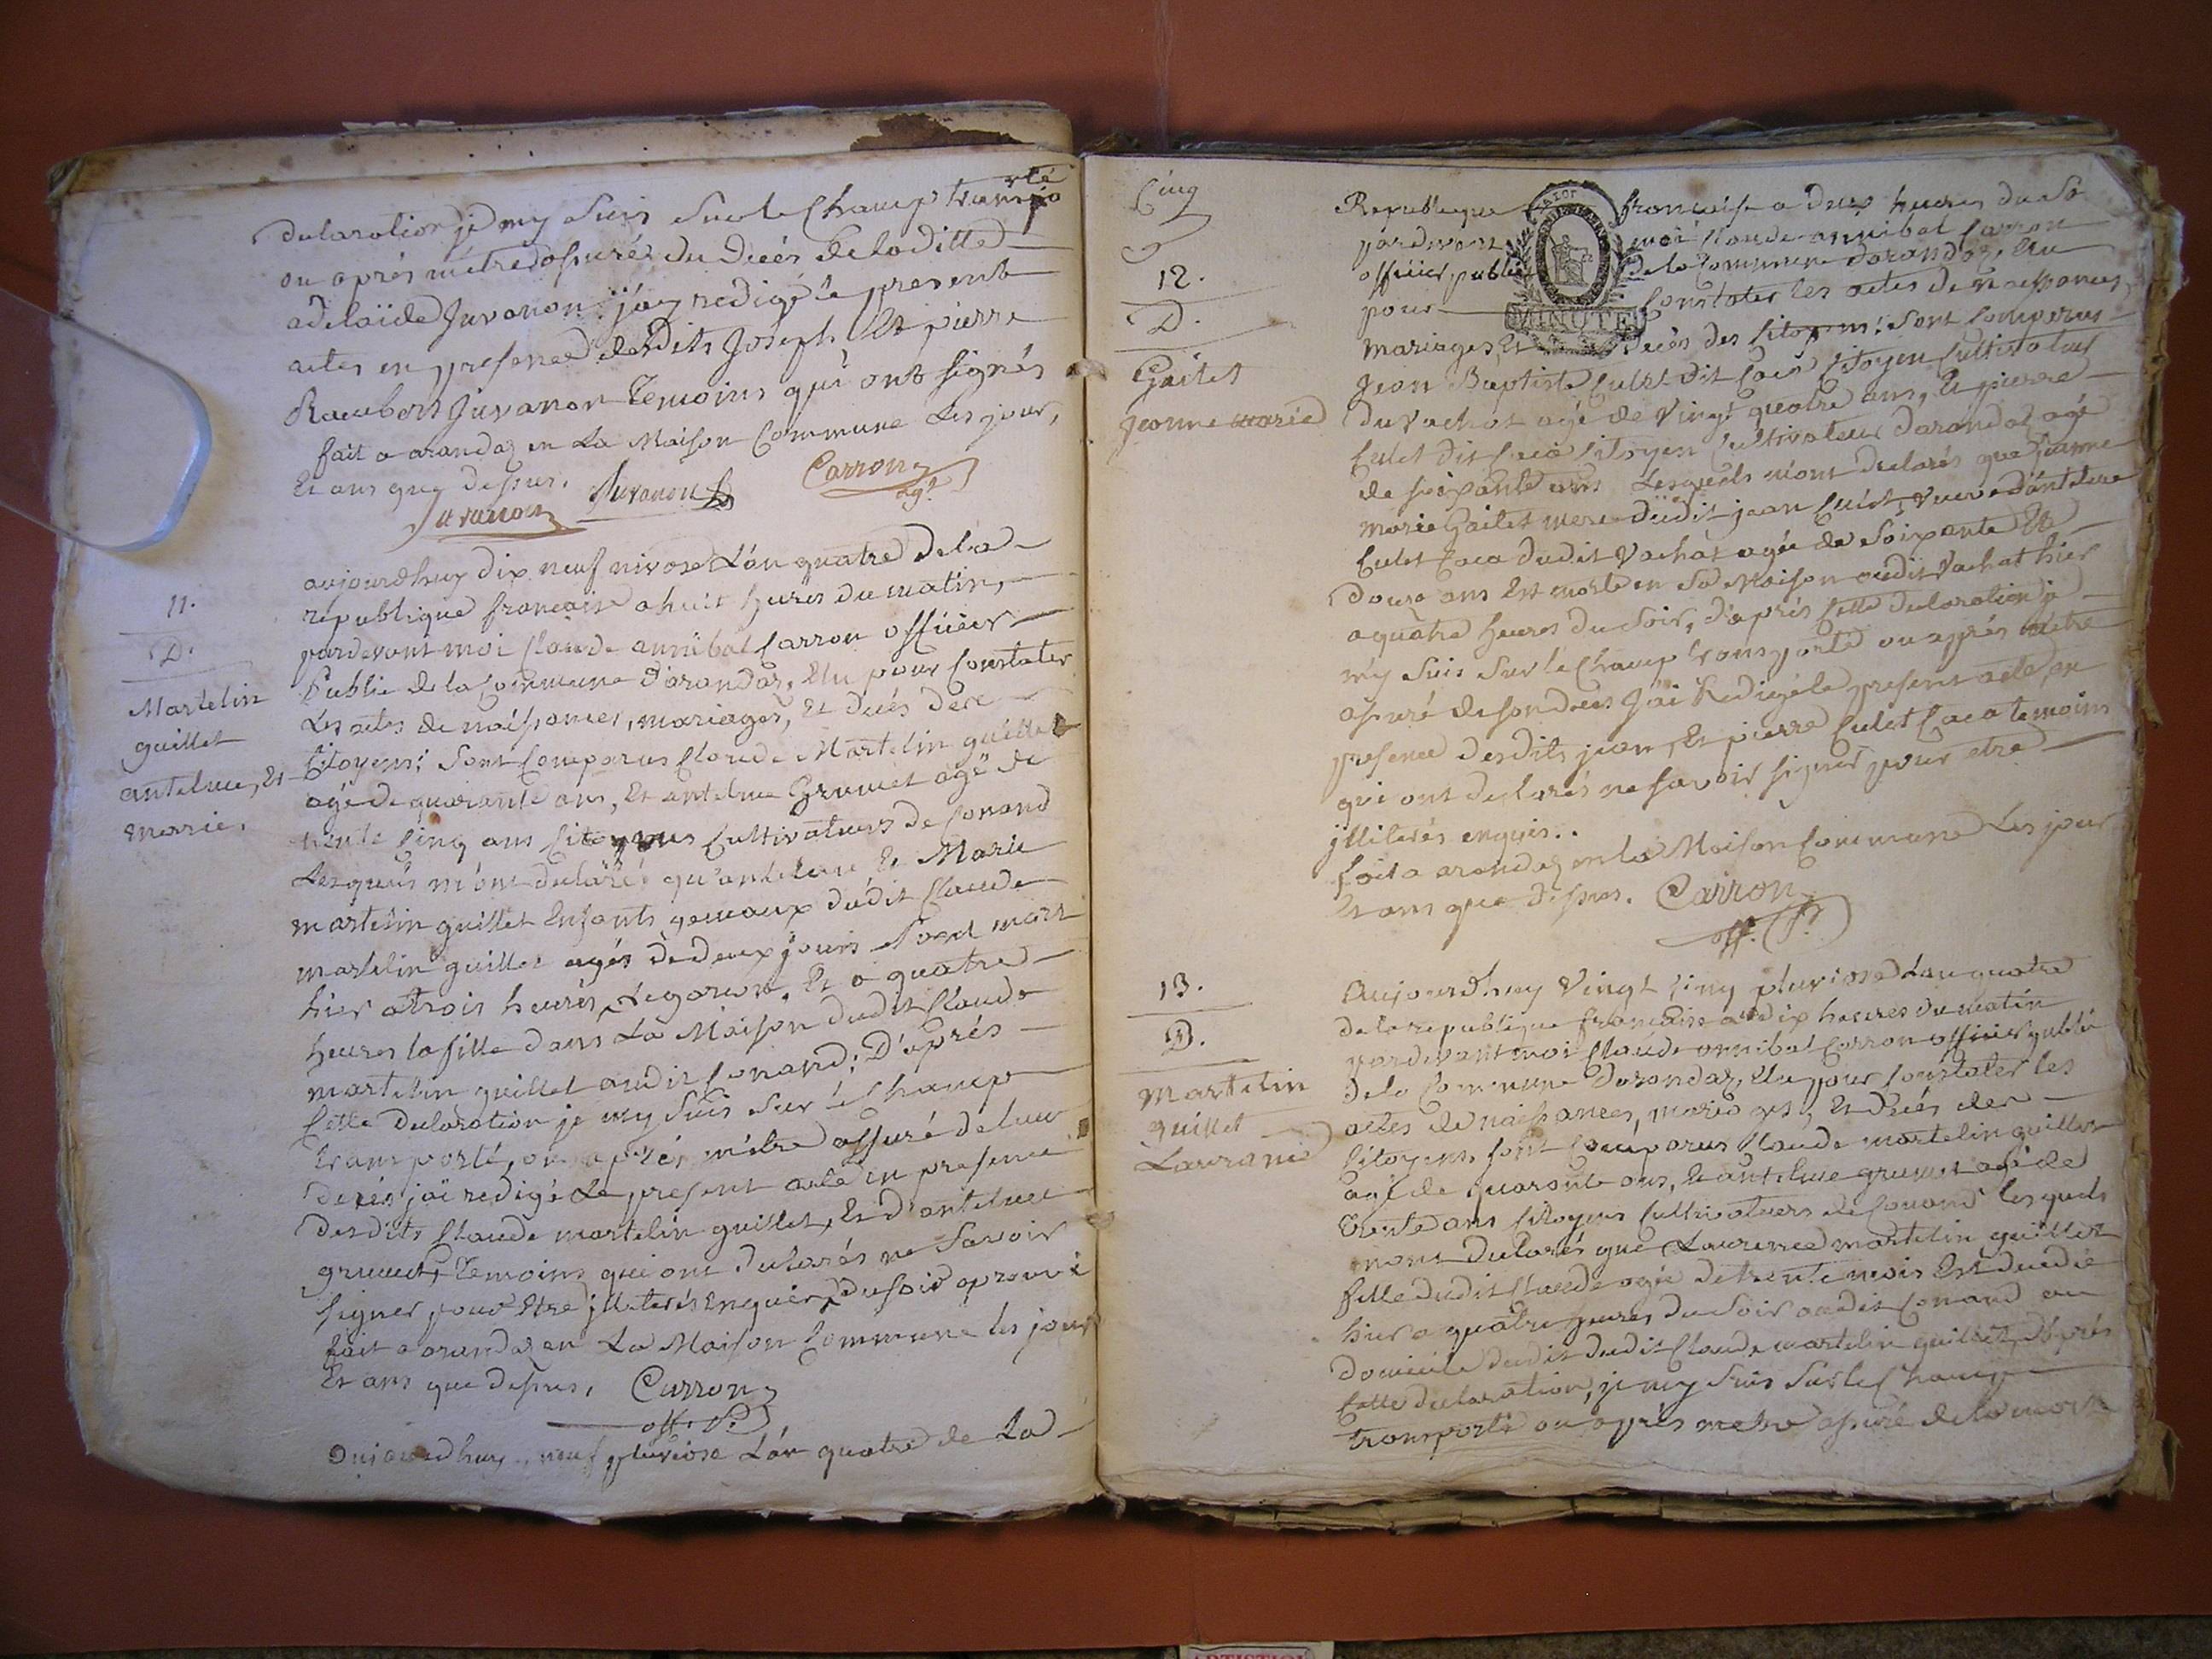 declaration je my suis sur le Champ transporté
ou aprés métre assuré du Decés de laditte
adelaïde Juvanon j'ay redigé le present
actes en presence desdits Joseph Et pierre
Rambert Juvanon Temoins qui ont signés
fait a arandaz en La Maison Commune Les jour,
Et ans que dessus. Juvanon Carron
Juvanon agt
11.
D.
Martelin
guillet
antelme, Et
marie.
aujourdhuy dix neuf nivose L'an quatre de la
republique francaise a huit heures du matin,
pardevant moi Claude annibal Carron officier
Public de la Commune d'arandaz, Elu pour Constater
Les actes de naissances, mariages, Et decés des
Citoyens; sont Comparus Claude Martelin guillet
agé de quarante ans, Et antelme Grumet agé de
trente Cinq ans Citoyens Cultivateurs de Conand
Lesquels m'ont declaré qu'antelme Et Marie
martelin guillet Enfants gemaux dudit Claude
martelin guillet agés de deux jours sont mort
hier atrois heures Legarcon, Et a quatre
heures la fille dans La Maison dudit Claude
martelin guillet audit Conand; D'aprés
Cette declaration je my suis sur le Champ
transporté, ou aprés métre assuré de leur
decés jai redigé Le present acte en presence
desdits Claude martelin guillet, Et d'antelme
grumet, Temoins qui ont declarés ne savoir
signer pour Etre jlliterés Enquis, du soir aprouvé
fait a arandaz en La Maison Commune les jour
Et ans que dessus. Carron
off. P.
Aujourdhuy neuf pluviose L'an quatre de La
Cinq
12.
D.
Gaitet
jeanne marie
Republique francaise a deux heures du so
pardevant moi Claude annibal Carron
officier public de la Commune darandaz, Elu
pour Constater les actes de naissances,
MINUTE
mariages, Et decés des Citoyens; sont Comparus
Jean Baptiste Culet dit Caca Citoyen Cultivateur
du Vachat agé de Vingt quatre ans, Et pierre
Culet dit Caca Citoyen Cultivateur darandaz agé
de soixante ans Lesquels m'ont declarés que jeanne
marie Gaitet mere dudit jean Culet, Veuve d'antelme
Culet Caca dudit Vachat agée de soixante Et
douze ans Est morte en sa Maison audit Vachat hier
a quatre heures du soir, d'aprés Cette declaration je
m'y suis sur le Champ transporté ou aprés metre
assuré de son decés j'ai Redigé le present acte en
presence desdits jean, Et pierre Culet Caca temoins
qui ont declarés ne savoir signer pour etre
jlliterés enquis..
fait a arandaz en la Maison Commune Les jour
Et ans que dessus. Carron
off. P.
13.
D.
Martelin
guillet
Laurance
Aujourdhuy Vingt Cinq pluviose L'an quatre
de la republique francaise a dix heures du matin
pardevant moi Claude annibal Carron officier public
de la Commune darandaz, Elu pour Constater les
actes de naissances, mariages, Et decés des
Citoyens sont Comparus Claude martelin guillet
agé de quarante ans, Et antelme grumet agé de
trente ans Citoyens Cultivateurs de Conand lesquels
mont declarés que Laurence martelin guillet
fille dudit Claude agée de trente mois Est decedée
hier a quatre heures du soir audit Conand au
domicile dudit dudit Claude martelin guillet, d'aprés
Cette declaration, je my suis sur le Champ
transporté ou aprés metre assuré de la morte